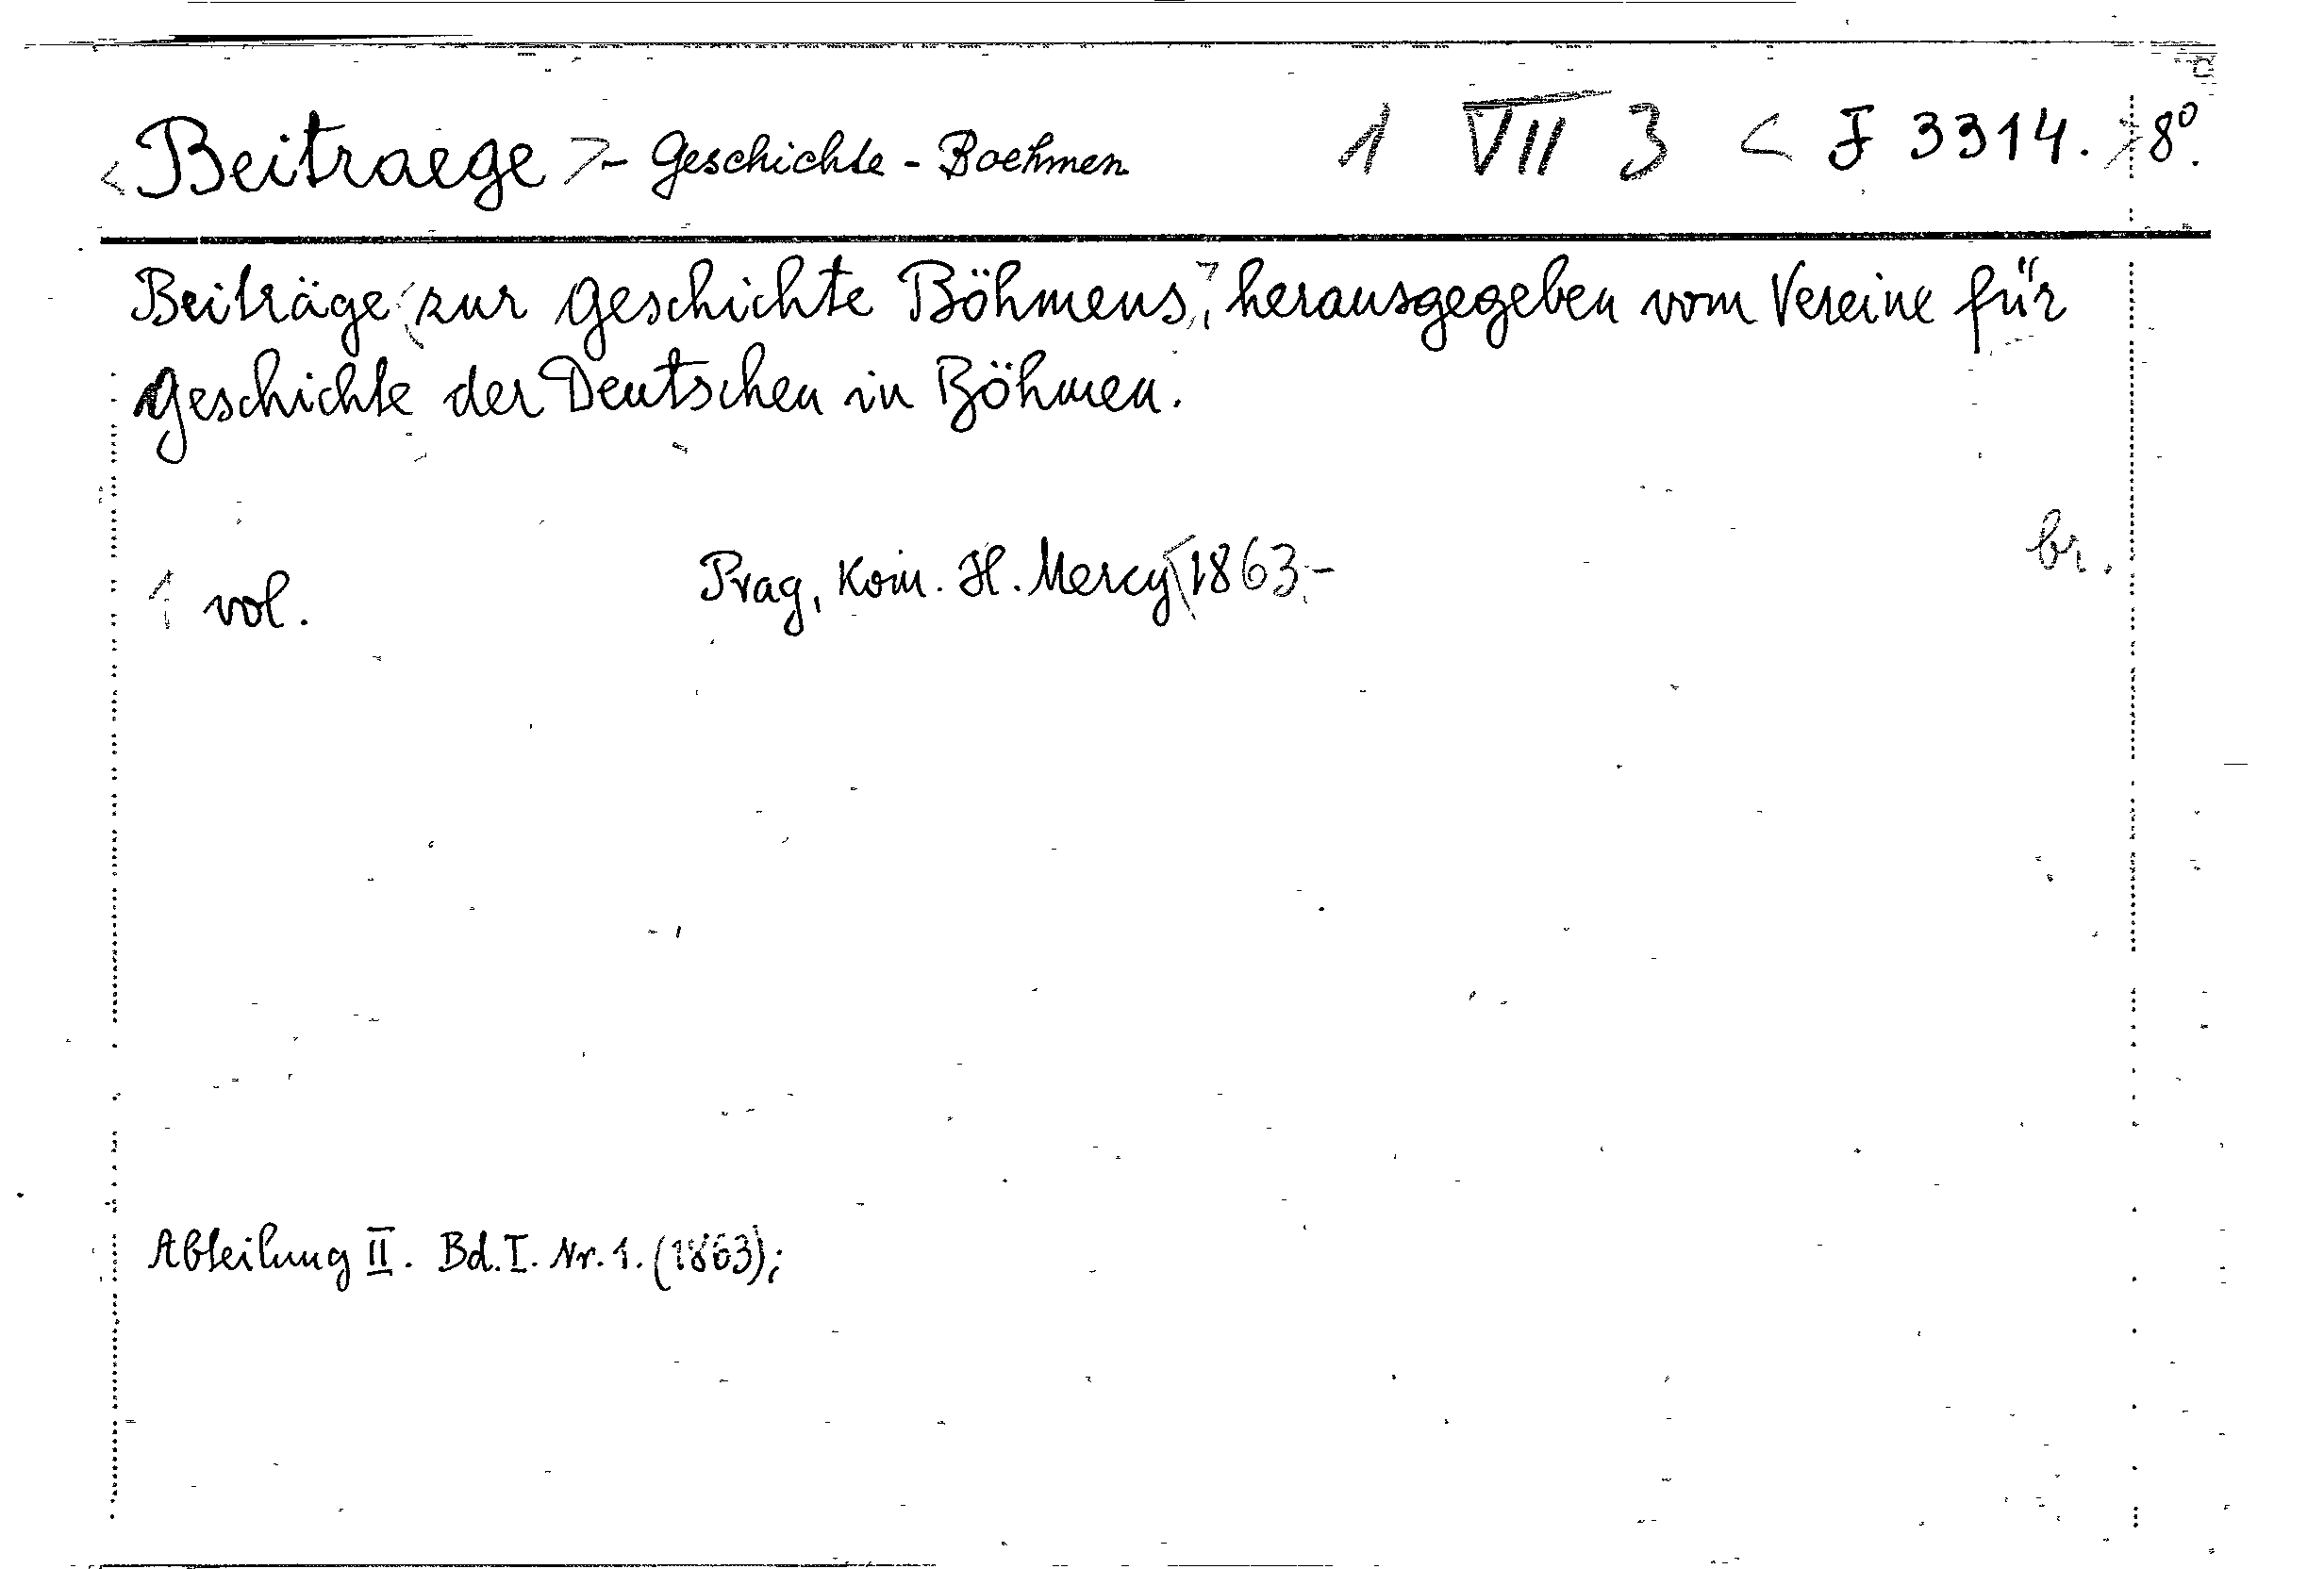 <Beitraege>- Geschichte - Boehmen 1 VII 3 <J 3314.> 8°.
Beiträge <zur Geschichte Böhmens,> herausgegeben vom Vereine für
Geschichte der Deutschen in Böhmen.
br.
1 vol. Prag, Kom. H. Mercy [1863.-
Abteilung II. Bd. I. Nr. 1. (1863);